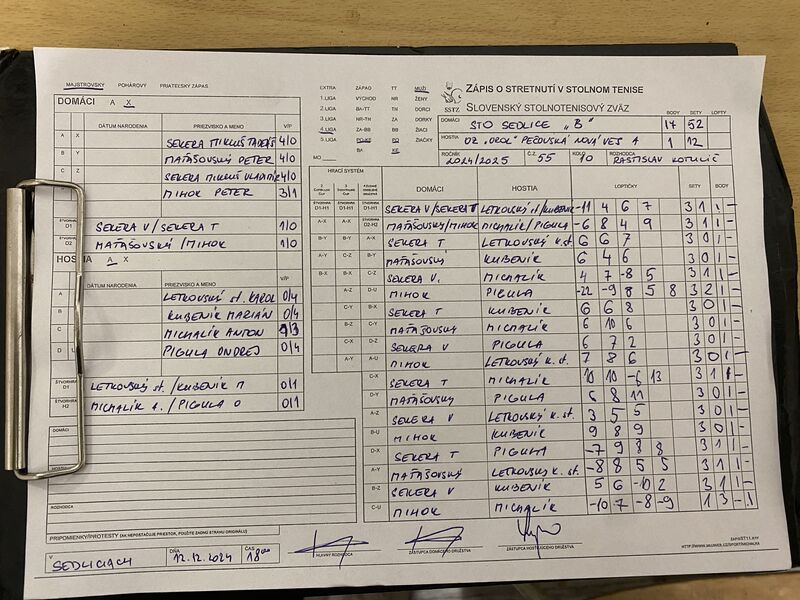 MAJSTROVSKÝ POHÁROVÝ PRIATEĽSKÝ ZÁPAS
EXTRA ZÁPAD TT MUŽI
1. LIGA VÝCHOD NR ŽENY
2. LIGA BA-TT TN DORCI
3. LIGA NR-TN ZA DORKY
4. LIGA ZA-BB BB ŽIACI
5. LIGA PO-KE PO ŽIAČKY
BA KE
MO
SSTZ
ZÁPIS O STRETNUTÍ V STOLNOM TENISE
SLOVENSKÝ STOLNOTENISOVÝ ZVÄZ
BODY SETY LOPTY
DOMÁCI STO SEDLICE „B" 17 52
HOSTIA OZ „OROL" PEČOVSKÁ NOVÁ VES A 1 12
ROČNÍK 2024/2025 Č. 55 KOLO 10 ROZHODCA RASTISLAV KOTULIČ
DOMÁCI A X
DÁTUM NARODENIA PRIEZVISKO A MENO V/P
A X SEKERA MIKULÁŠ TADEÁŠ 4/0
B Y MAŤAŠOVSKÝ PETER 4/0
C Z SEKERA MIKULÁŠ VLADIMÍR 4/0
MIHOK PETER 3/1
ŠTVORHRA D1 SEKERA V/SEKERA T 1/0
ŠTVORHRA D2 MAŤAŠOVSKÝ/MIHOK 1/0
HOSTIA A X
DÁTUM NARODENIA PRIEZVISKO A MENO V/P
A LETKOVSKÝ st. KAROL 0/4
B KUBENIK MARIÁN 0/4
C MICHALÍK ANTON 1/3
D U PIGULA ONDREJ 0/4
ŠTVORHRA LETKOVSKÝ st/KUBENIK M 0/1
ŠTVORHRA H2 MICHALÍK A./PIGULA O 0/1
HRACÍ SYSTÉM
DOMÁCI HOSTIA LOPTIČKY SETY BODY
D1-H1 D1-H1 D1-H1 SEKERA V/SEKERA T LETKOVSKÝ st/KUBENIK -11 4 6 7 3 1 1 -
A-X A-X D2-H2 MAŤAŠOVSKÝ/MIHOK MICHALÍK/PIGULA 6 8 4 9 3 1 1 -
B-Y B-Y A-X SEKERA T LETKOVSKÝ K. st. 6 6 7 3 0 1 -
A-Y C-Z B-Y MAŤAŠOVSKÝ KUBENIK 6 4 6 3 0 1 -
B-X B-X C-Z SEKERA V. MICHALÍK 4 7 -8 5 3 1 1 -
A-Z D-U MIHOK PIGULA -22 -9 8 5 8 3 2 1 -
C-Y B-X SEKERA T KUBENIK 6 6 8 3 0 1 -
B-Z C-Y MAŤAŠOVSKÝ MICHALÍK 6 10 6 3 0 1 -
C-X D-Z SEKERA V PIGULA 6 7 2 3 0 1 -
A-Y A-U MIHOK LETKOVSKÝ K. st. 7 8 6 3 0 1 -
C-X SEKERA T MICHALÍK 10 10 -6 13 3 1 1 -
D-Y MAŤAŠOVSKÝ PIGULA 6 8 11 3 0 1 -
A-Z SEKERA V LETKOVSKÝ K. st. 3 5 5 3 0 1 -
B-U MIHOK KUBENIK 9 8 9 3 0 1 -
D-X SEKERA T PIGULA -7 9 8 8 3 1 1 -
A-Y MAŤAŠOVSKÝ LETKOVSKÝ K. st. -8 8 5 5 3 1 1 -
B-Z SEKERA V KUBENIK 5 6 -10 2 3 1 1 -
C-U MIHOK MICHALÍK -10 7 -8 -9 1 3 - 1
DOMÁCI
HOSTIA
ROZHODCA
PRIPOMIENKY/PROTESTY (AK NEPOSTAČUJE PRIESTOR, POUŽITE ZADNÚ STRANU ORIGINÁLU)
V SEDLICIACH DŇA 12.12.2024 ČAS 18 00
HLAVNÝ ROZHODCA ZÁSTUPCA DOMÁCEHO DRUŽSTVA ZÁSTUPCA HOSŤUJÚCEHO DRUŽSTVA